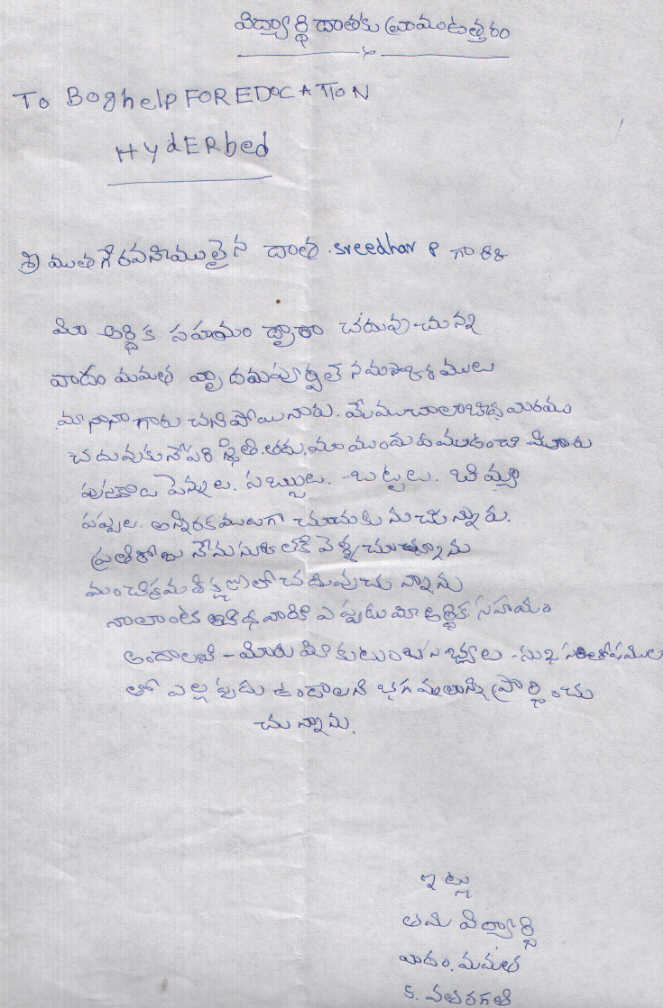 విద్యార్థి దాతకు వ్రాయుఉత్తరం
To Boghelp FOR EDOCATION
HydERbed
శ్రీ ముత గౌరవనీయులైన దాత. sreedhar P గారికి
మీ ఆర్థిక సహయం ద్వారా చదువు-చున్న
పాదం మమత వ్రా దయపూర్వక నమస్కారములు
మా నాన్న గారు చనిపోయినారు. మేము చాలా చిన్న
చదువుకునే పరిస్థితి. మీరు
పెన్నులు. సబ్బులు. బట్టలు. బియ్యం
పప్పులు. అన్నిరకములుగా చూచుకు నుచున్నారు.
ప్రతిరోజు నేను స్కూల్ కి వెళ్ళు చూన్నాను
మంచి క్రమశిక్షణలో చదువుచు న్నాను
నాలాంటి వారికి ఎప్పుడు మీ ఆర్థిక సహయం
అందాలని - మీరు మీ కుటుంబ సభ్యులు - సుఖ సంతోషముల
తో ఎల్లప్పుడు ఉండాలని భగవంతున్ని ప్రార్థించు
చున్నాను.
ఇట్లు
తమ విద్యార్థి
పాదం. మమత
5. వతరగతి